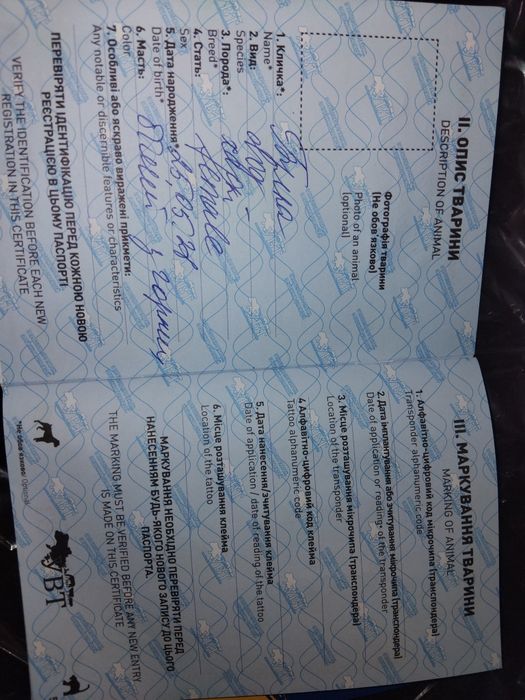 II. ОПИС ТВАРИНИ
DESCRIPTION OF ANIMAL
Фотографія тварини
(Не обов'язково)
Photo of an animal
(optional)
1. Кличка*:
Name*
2. Вид: dog
Species
3. Порода*:
Breed*
4. Стать: female
Sex
5. Дата народження*:
Date of birth*
6. Масть:
Color
7. Особливі або яскраво виражені прикмети:
Any notable or discernible features or characteristics
ПЕРЕВІРЯТИ ІДЕНТИФІКАЦІЮ ПЕРЕД КОЖНОЮ НОВОЮ
РЕЄСТРАЦІЄЮ В ЦЬОМУ ПАСПОРТІ
VERIFY THE IDENTIFICATION BEFORE EACH NEW
REGISTRATION IN THIS CERTIFICATE
III. МАРКУВАННЯ ТВАРИНИ
MARKING OF ANIMAL
1. Алфавітно-цифровий код мікрочипа (транспондера)
Transponder alphanumeric code
2. Дата імплантування або зчитування мікрочипа (транспондера)
Date of application or reading* of the transponder
3. Місце розташування мікрочипа (транспондера)
Location of the transponder
4 Алфавітно-цифровий код клейма
Tattoo alphanumeric code
5. Дата нанесення/зчитування клейма
Date of application / date of reading of the tattoo
6. Місце розташування клейма
Location of the tattoo
МАРКУВАННЯ НЕОБХІДНО ПЕРЕВІРЯТИ ПЕРЕД
НАНЕСЕННЯМ БУДЬ-ЯКОГО НОВОГО ЗАПИСУ ДО ЦЬОГО
ПАСПОРТА.
THE MARKING MUST BE VERIFIED BEFORE ANY NEW ENTRY
IS MADE ON THIS CERTIFICATE
*Не обов'язково/Optional